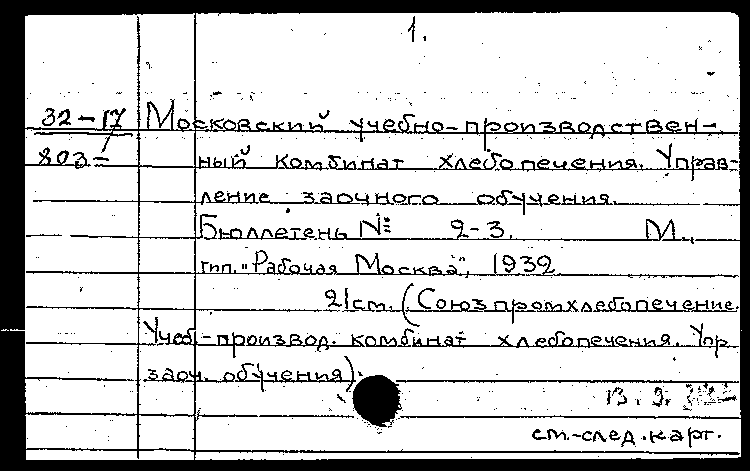 1.
32-17 Московский учебно-производствен-
803= ный комбинат хлебопечения. Управ-
ление заочного обучения.
Бюллетень № 2-3. М.,
тип. "Рабочая Москва", 1932
21см. (Союзпромхлебопечение.
Учеб.-производ. комбинат хлебопечения. Упр.
заоч. обучения)
13. 9.
см.-след.карт.